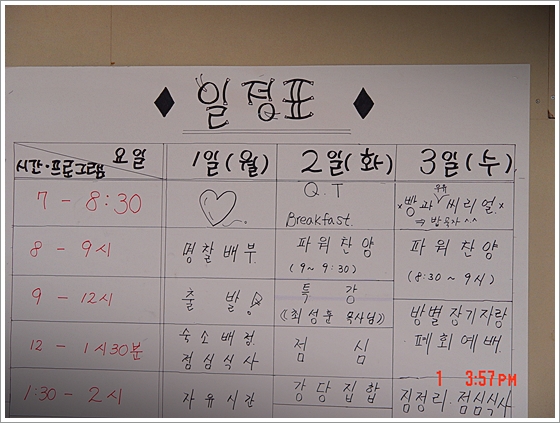 일정표
시간·프로그램 요일 1일(월) 2일(화) 3일(수)
7 - 8:30
Q.T
Breakfast.
우유
*빵과 씨리얼*
⇒ 방욱자^^
8 - 9시 명찰배부 파워찬양
(9~9:30)
파워찬양
(8:30~9시)
9 - 12시 출 발! 특 강
《최성훈 목사님》
방별 장기자랑
폐회예배
12 - 1시30분 숙소배정
점심식사
점 심
1:30 - 2시 자유시간 강당집합 짐정리. 점심식사
1 3:57PM